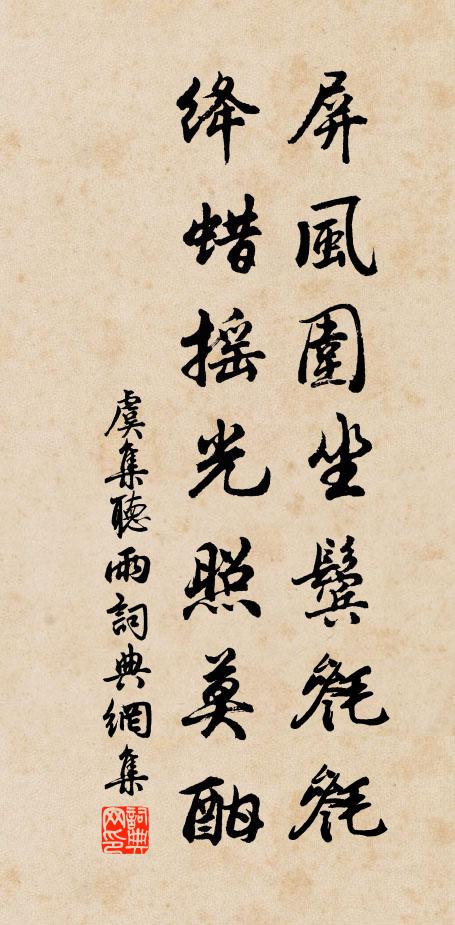 屏風圍坐鬢毿毿
绛蜡摇光照莫酣
虞集聽雨詞典網集
詞典网印